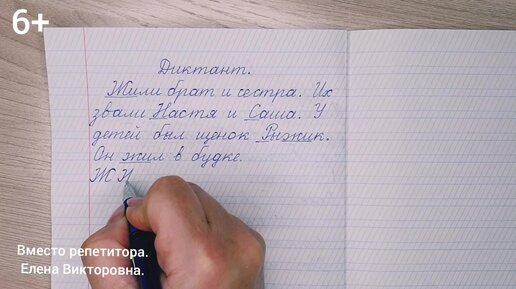 6+
Диктант.
Жили брат и сестра. Их
звали Настя и Саша. У
детей был щенок Рыжик.
Он жил в будке.
Ж И
Вместо репетитора.
Елена Викторовна.